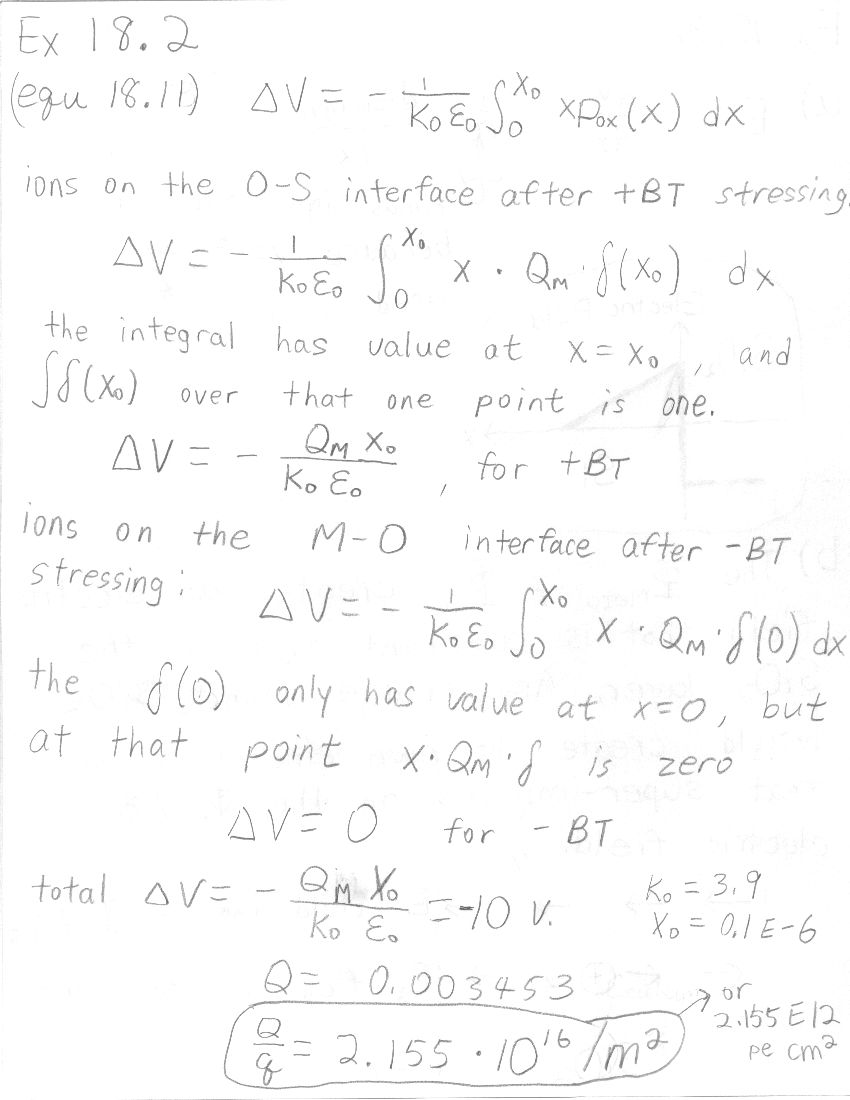 Ex 18.2
(equ 18.11) ΔV = - 1/(K₀ ε₀) ∫₀^X₀ xρ_ox(x) dx
ions on the O-S interface after +BT stressing.
ΔV = - 1/(K₀ε₀) ∫₀^X₀ x · Q_M · δ(x₀) dx
the integral has value at x = x₀ , and
∫δ(x₀) over that one point is one.
ΔV = - Q_M X₀/(K₀ ε₀) , for +BT
ions on the M-O interface after -BT
stressing:
ΔV = - 1/(K₀ ε₀) ∫₀^X₀ x · Q_M · δ(0) dx
the δ(0) only has value at x=0, but
at that point x·Q_M·δ is zero
ΔV = 0 for - BT
total ΔV = - Q_M X₀/(K₀ ε₀) = -10 V.
K₀ = 3.9
X₀ = 0.1 E-6
Q = 0.003453
Q/q = 2.155 · 10¹⁶ /m²
or
2.155 E12
pe cm²